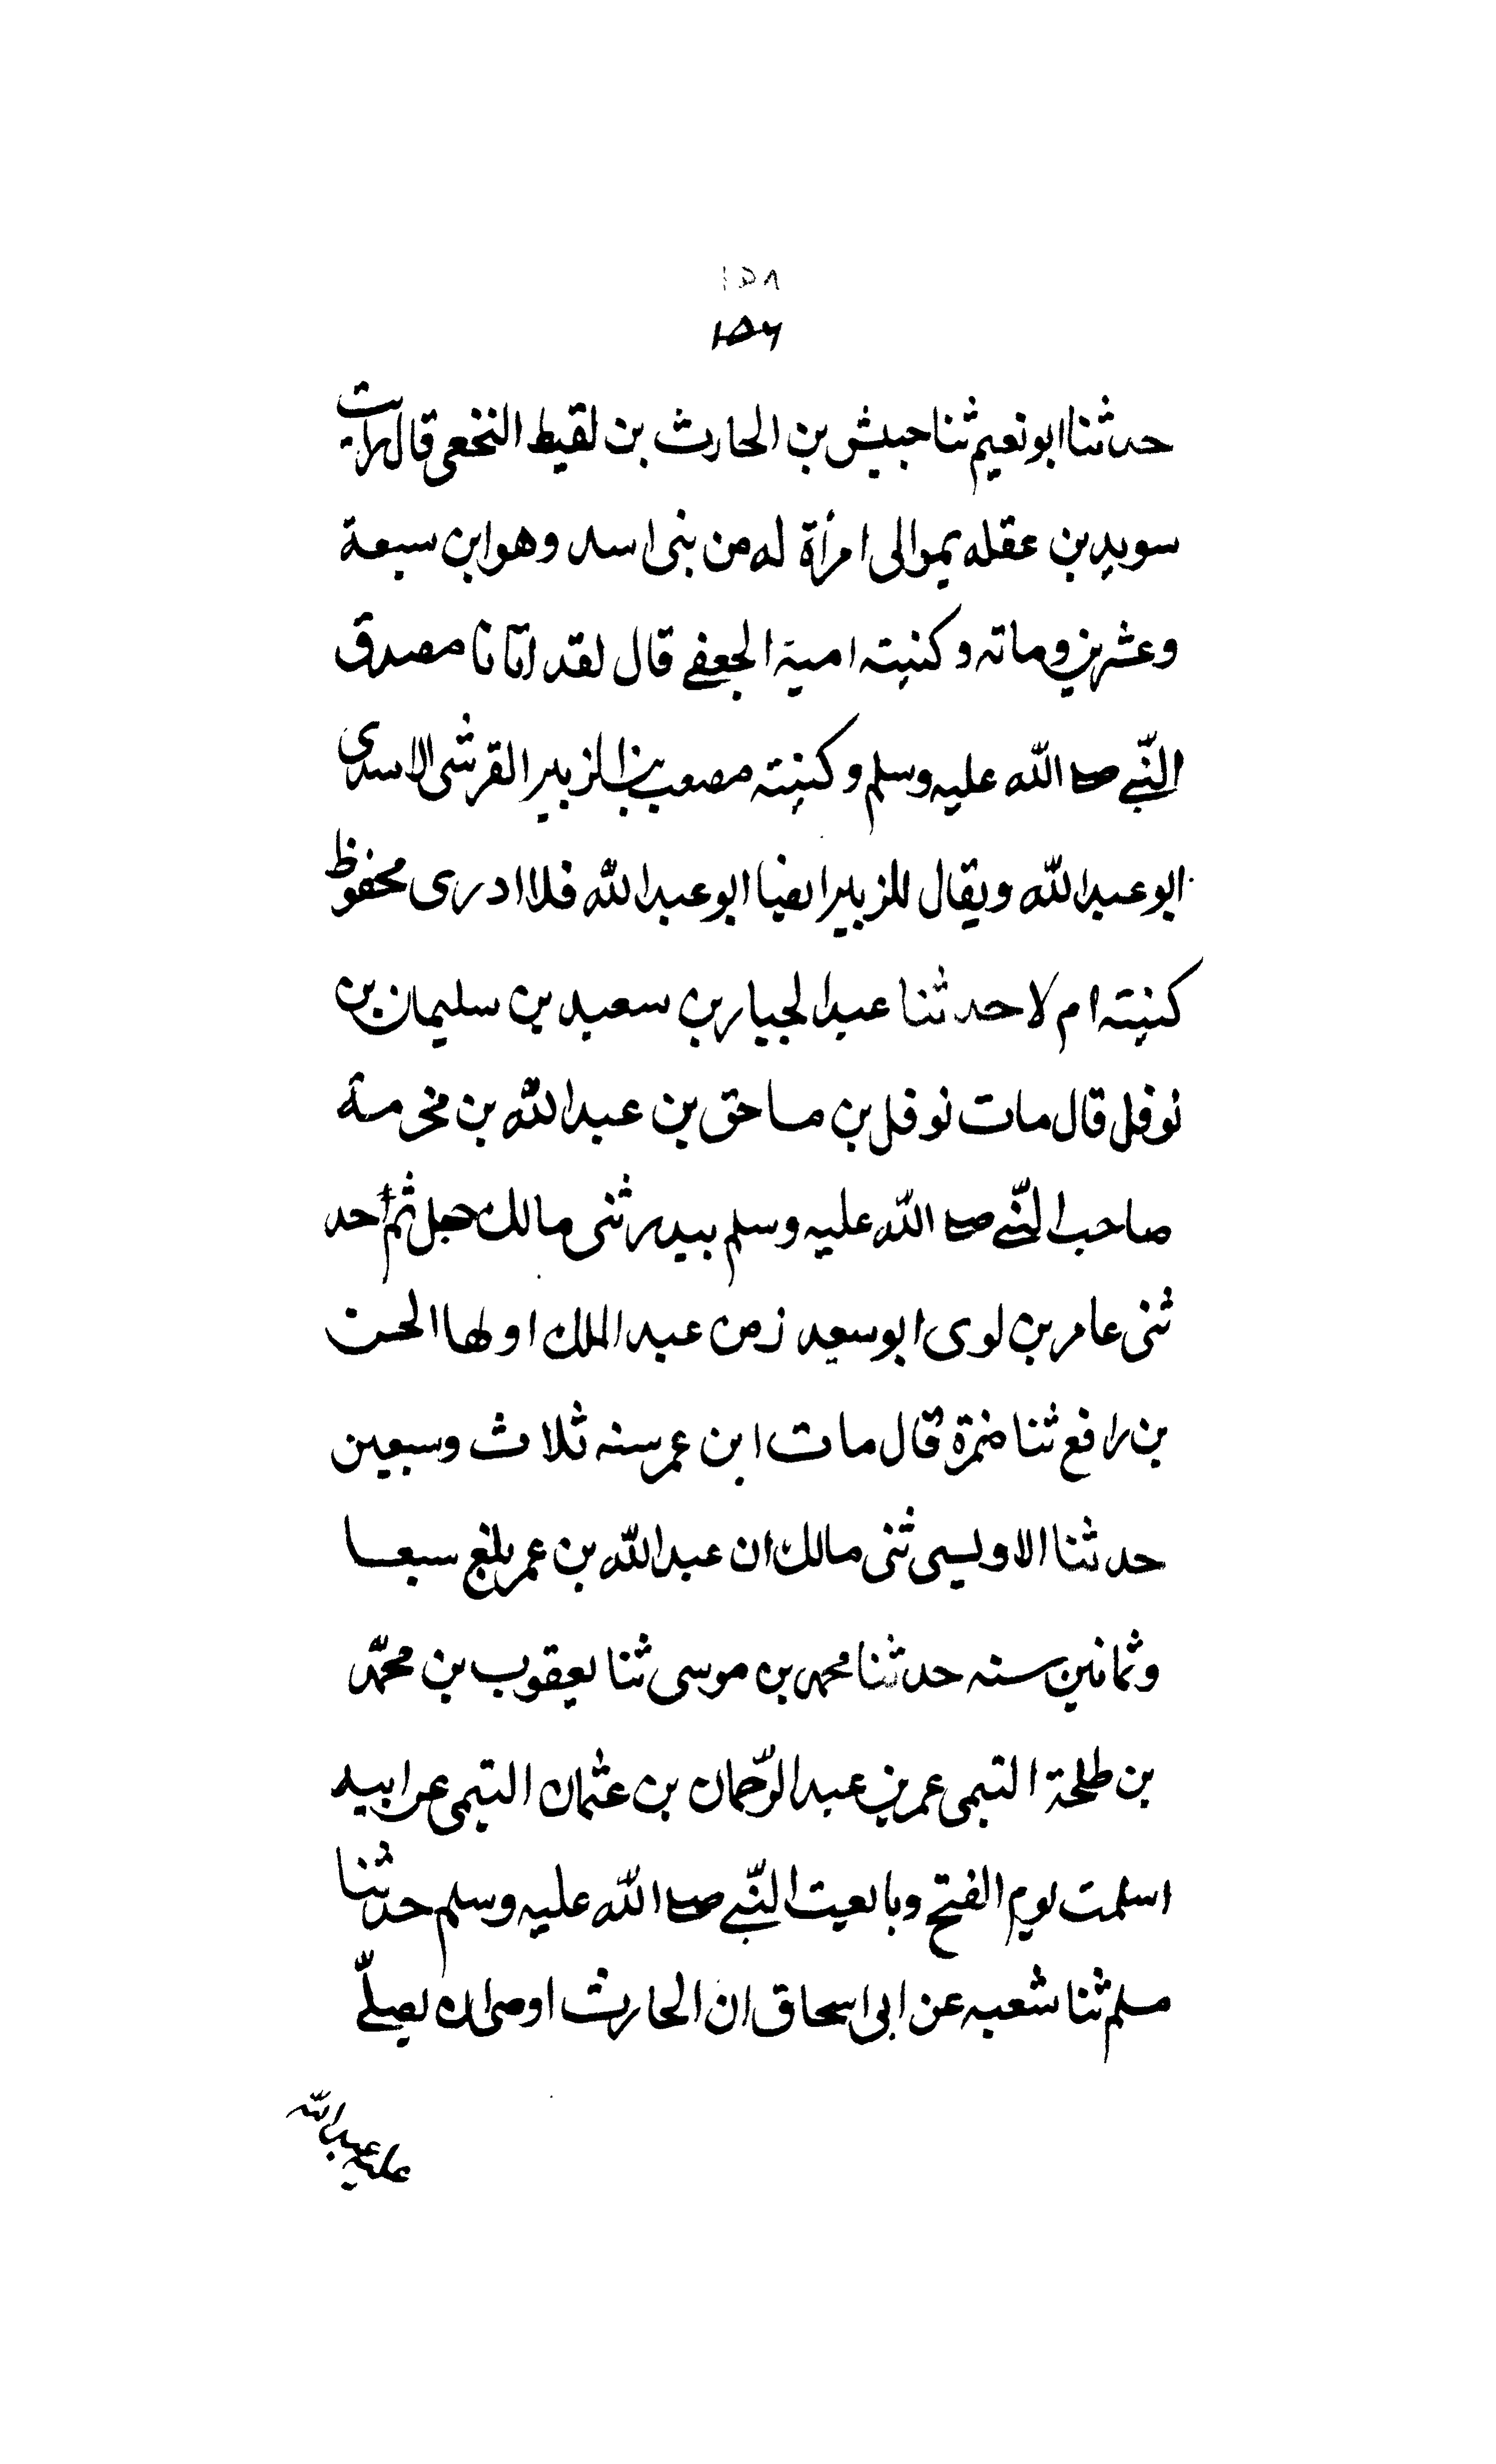 ١٥٨
١٥٦
حدثنا ابو نعيم ثنا حبيش بن الحارث بن لقيط النخعى قال رايت
سويد بن عقله يموالى امرأة له من بنى اسد وهو ابن سبعة
وعشرين ومائه وكنيته امية الجعفے قال لقد اتانا مصدق
النّبے صلے الله عليه وسلم وكنيته مصعب بن الزبير القرشى الاسدى
ابو عبد الله ويقال للزبير ايضا ابو عبد الله فلا ادرى محفوظ
كنيته ام لا حدثنا عبد الجبار بن سعيد بن سليمان بن
نوفل قال مات نوفل بن مساحق بن عبد الله بن مخرمة
صاحب النّبے صلے الله عليه وسلم ببدر ثنى مالك حبل ثم احد
ثنى عامر بن لوى ابو سعيد زمن عبد الملك اولها الحسن
بن رافع ثنا ضمرة قال مات ابن عمر سنه ثلاث وسبعين
حدثنا الاويسى ثنى مالك ان عبد الله بن عمر بلغ سبعا
وثمانين سنه حدثنا محمد بن موسى ثنا يعقوب بن محمّد
بن طلحة التيمى عمر بن عبد الرّحمان بن عثمان التيمى عن ابيه
اسلمت يوم الفتح وبايعت النّبے صلے الله عليه وسلم حدثنا
مسلم ثنا شعبه عن ابى اسحاق ان الحارث اوصى ان يصلّے
عليه عبد الله